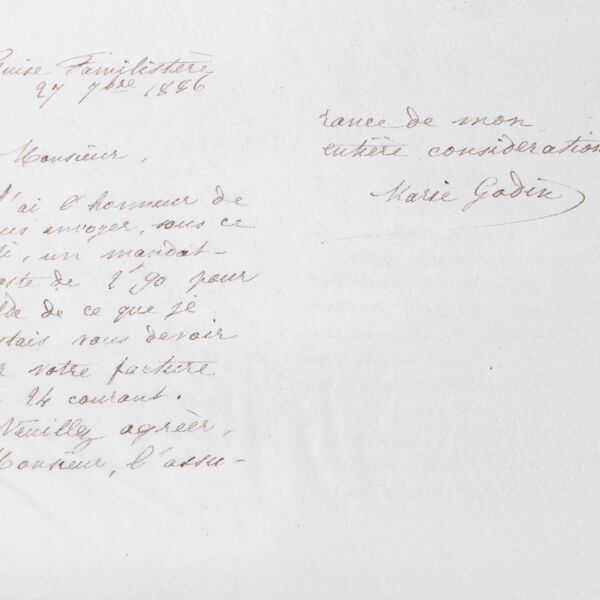 Guise Familistère
27 7bre 1886
Monsieur,
J'ai l'honneur de
vous envoyer, sous ce
pli, un mandat-
poste de 2f90 pour
solde de ce que je
restais vous devoir
sur votre facture
24 courant.
Veuillez agréer,
Monsieur, l'assu-
rance de mon
entière considération
Marie Godin